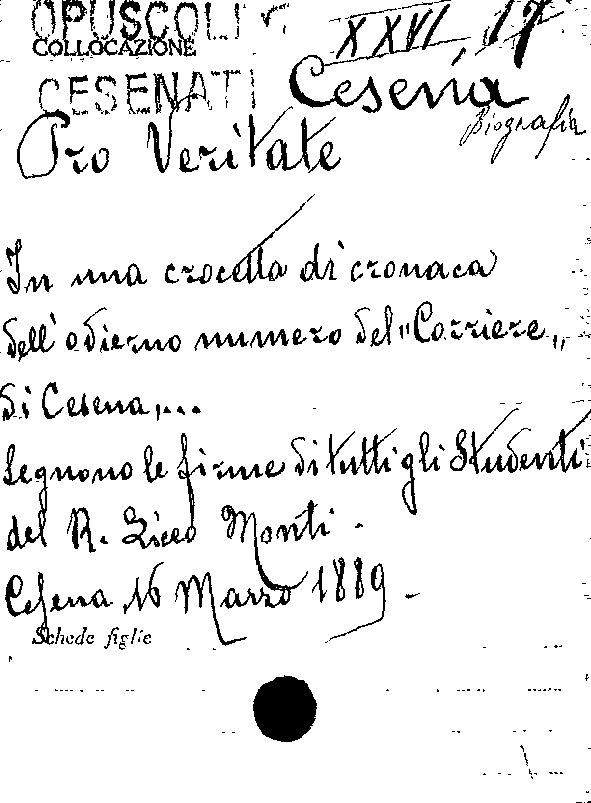 OPUSCOLI XXVI, 17
COLLOCAZIONE
CESENATI Cesena
Biografia
Pro Veritate
In una crocetta di cronaca
dell'odierno numero del "Corriere„
di Cesena,...
Segnono le firme di tutti gli Studenti
del R. Liceo Monti.
Cesena, 16 Marzo 1889.
Schede figlie